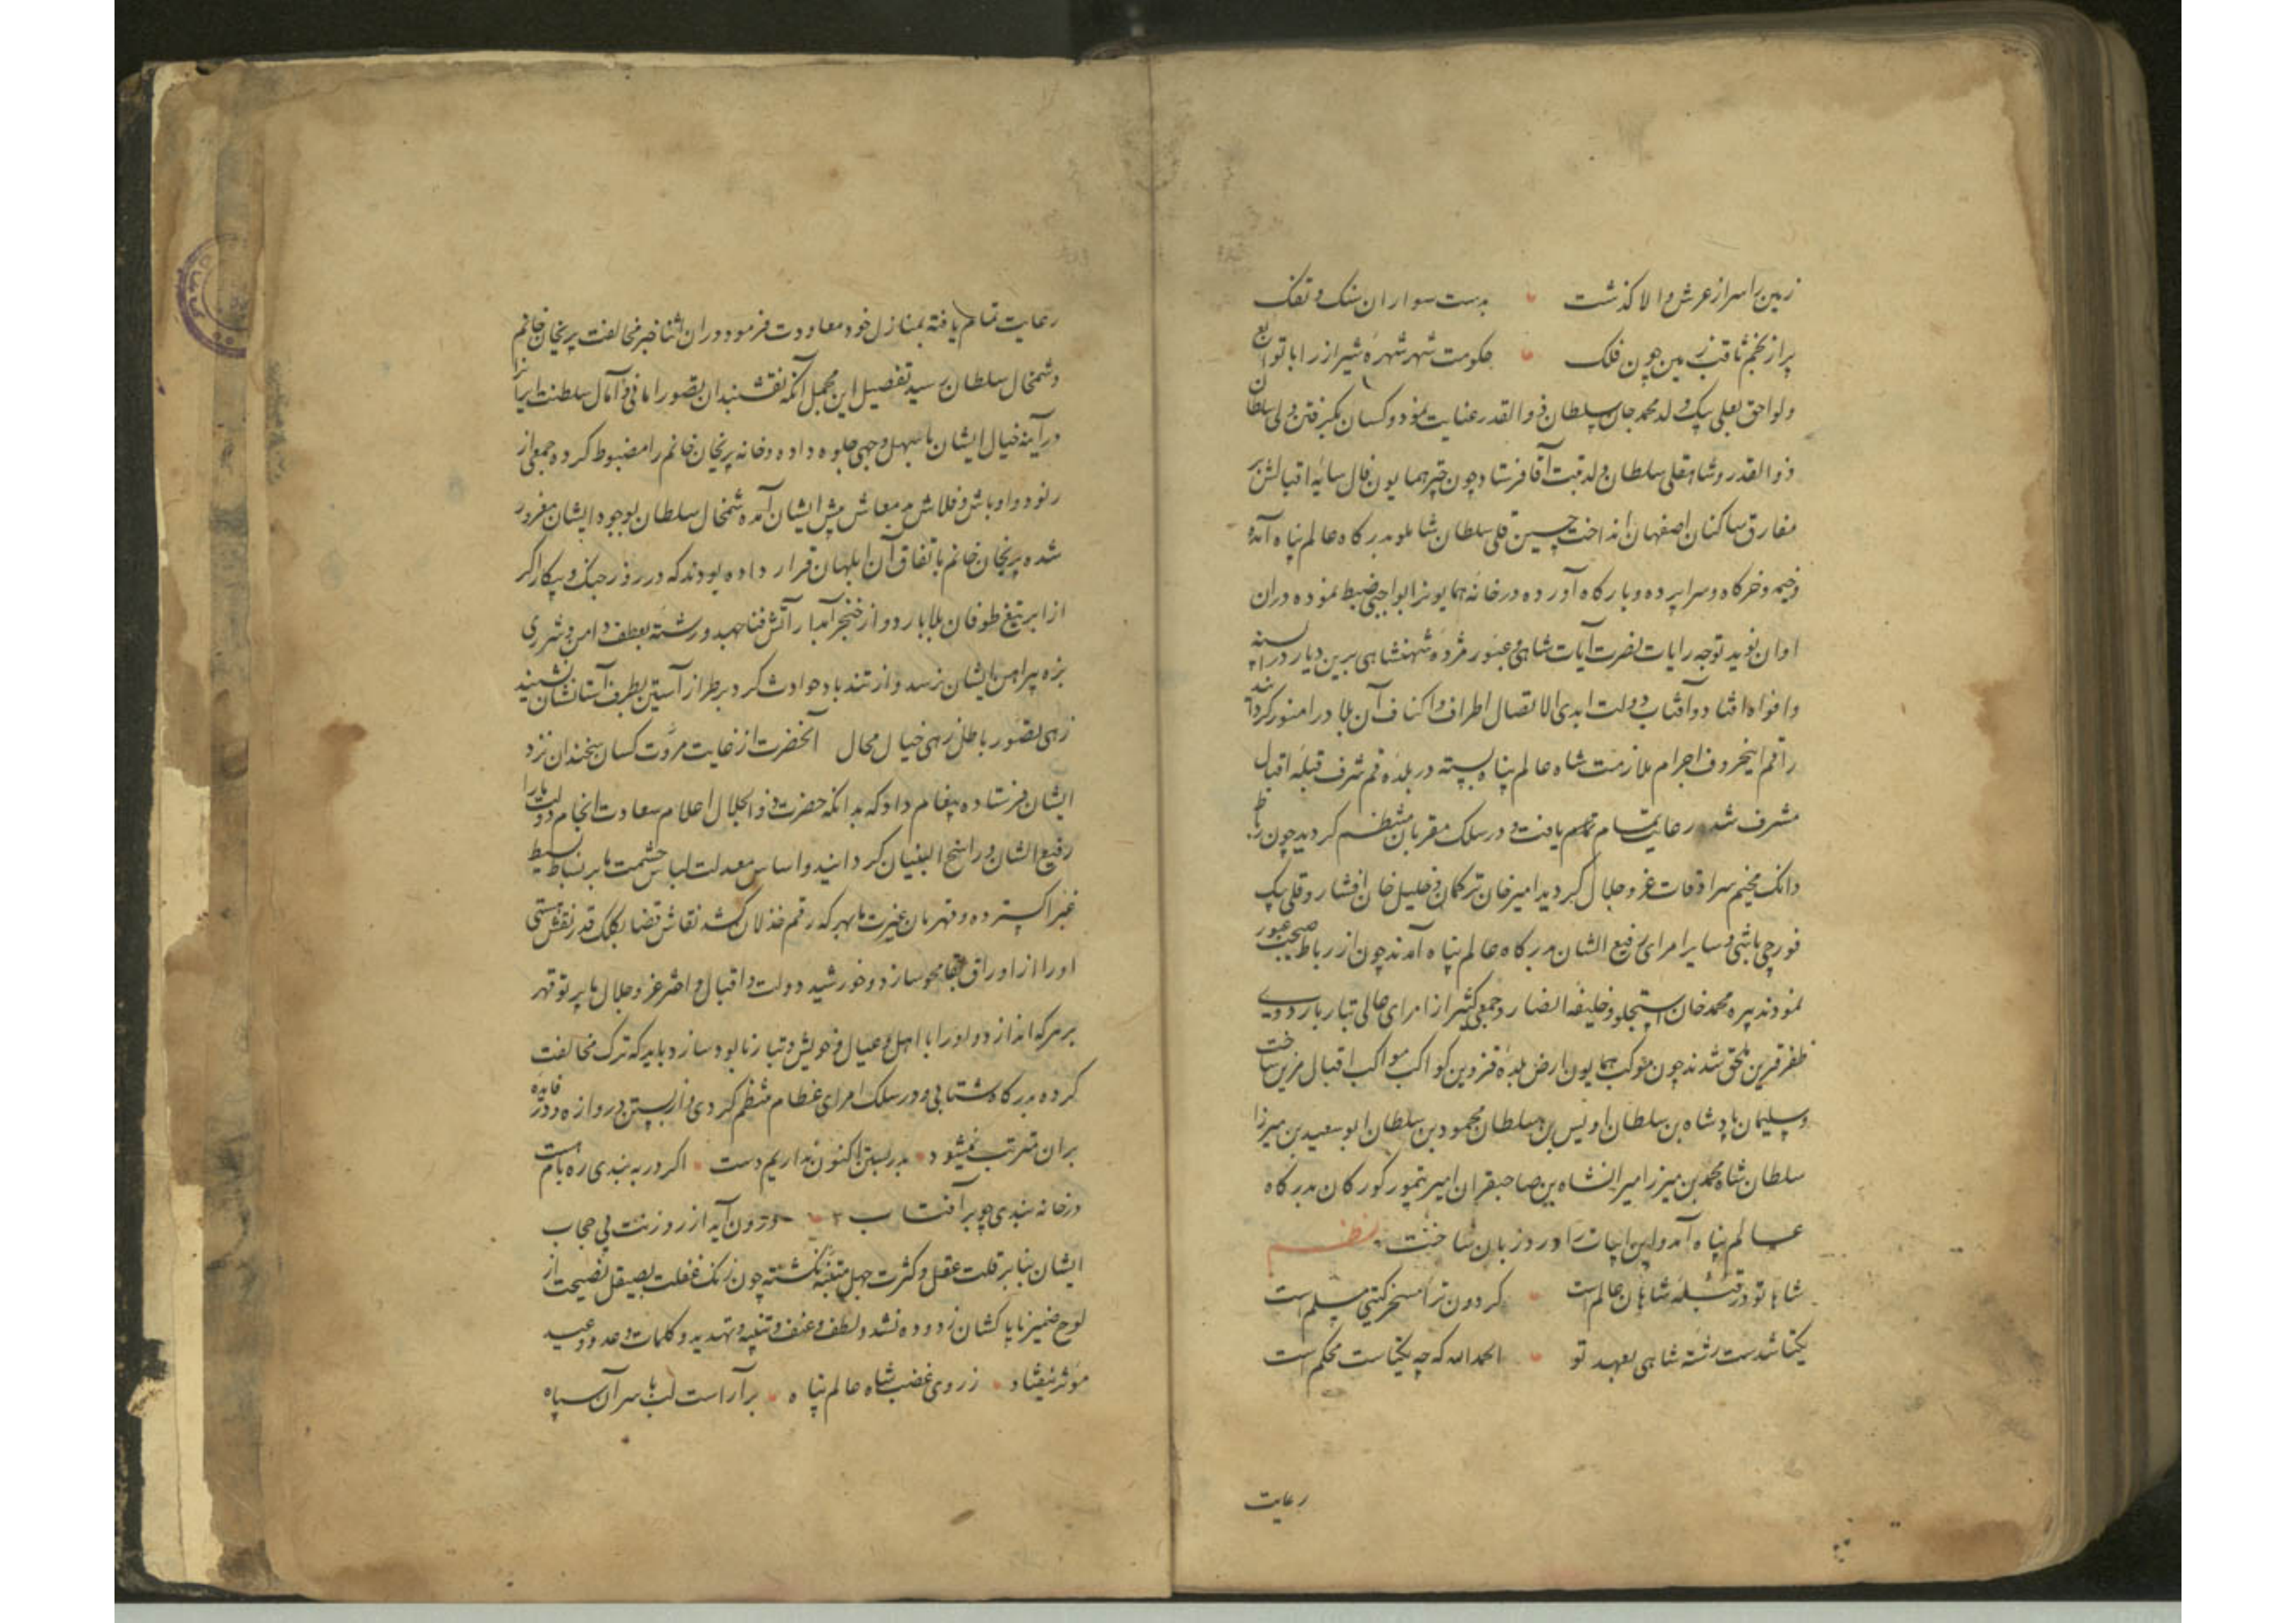 زمین را سر از عرش والا گذشت بدست سواران سنک و تفک
پر از نجم ثاقب زمین چون فلک حکومت شهر شهره شیراز را با توابع
و لواحق بعلی بیک ولد محمد جان سلطان ذوالقدر عنایت نمود و کسان بگرفتن ولی سلطان
ذوالقدر و شاهقلی سلطان ولد تبت آقا فرستاد چون چتر همایون فال سایه اقبالش بر
مفارق ساکنان اصفهان انداخت حسین قلی سلطان شاملو بدرکاه عالم پناه آمده
و خیمه و خرکاه و سراپرده و بارکاه آورده درخانه همایونرا بواجبی ضبط نموده دران
اوان نوید توجه رایات نصرت آیات شاهی و عبور مژده شهنشاهی برین دیار در السنه
و افواه افتاد و آفتاب دولت ابدی الاتصال اطراف و اکناف آن بلاد را منور کردانید
راقم اینحروف احرام ملازمت شاه عالم پناه بسته در بلده قم شرف قبله اقبال
مشرف شد رعایت تمام یافت و در سلک مقربان منتظم کردید چون رباط
دانک مخیم سرادقات عز و جلال کردید امیرخان ترکمان و خلیل خان افشار و قلی بیک
قورچی باشی و سایر امرای رفیع الشان بدرکاه عالم پناه آمدند چون از رباط عبور
نمودند پیره محمد خان استجلو و خلیفه انصار و جمعی کثیر از امرای عالی تبار باردوی
ظفر قرین ملحق شدند چون موکب همایون ارض بلده قزوین کواکب مواکب اقبال مزین ساخت
و سلیمان پادشاه بن سلطان اویس بن سلطان محمود بن سلطان ابوسعید بن میرزا
سلطان شاه محمد بن میرزا میرانشاه بن صاحبقران امیر تیمور کورکان بدرکاه
عالم پناه آمد و این ابیات را ورد زبان ساخت نظم
شاها تو در قبله شاهان عالم است کردون ترا مسخر کیتی مسلم است
یکتا شدست رشته شاهی بعهد تو الحمدالله که چه یکتاست محکم است
رعایت
رعایت تمام یافته بمنازل خود معاودت فرمود دران اثنا خبر مخالفت پریخان خانم
و شمخال سلطان رسید تفصیل این مجمل آنکه نقشبندان تصور امانی و آمال سلطنت ایرانرا
در آینه خیال ایشان باسهل وجهی جلوه داده و خانه پریخان خانم را مضبوط کرده جمعی از
رنود و اوباش و قلاش بد معاش پیش ایشان آمده شمخال سلطان بوجود ایشان مغرور
شده پریخان خانم باتفاق آن ابلهان قرار داده بودند که در روز جنک و پیکار اکر
از ابر تیغ طوفان بلا بارد و از خنجر آبدار آتش فنا جهد و رشته بعطف دامن و شرری
بزه پیراهن ایشان نرسد و از تند باد حوادث کرد بر طراز آستین بطرف آستانشان ننشیند
زهی تصور باطل زهی خیال محال آنحضرت از غایت مروت کسان سخندان نزد
ایشان فرستاده پیغام داد که بدانکه حضرت ذوالجلال اعلام سعادت انجام دولت ما را
رفیع الشان و راسخ البنیان کردانید و اساس معدلت لباس حشمت ما بر بساط بسیط
غبرا کسترده و قهرمان غیرت ما بهر که رقم خذلان کشد نقاش قضا بکلک قدر نقش هستی
اورا از اوراق بقا محو سازد و خورشید دولت و اقبال و اختر عز و جلال ما پرتو قهر
بر هر که اندازد اورا با اهل و عیال و خویش و تبار نابود سازد باید که ترک مخالفت
کرده بدرکاه شتابی و در سلک امرای عظام منتظم کردی و از بستن دروازه و در فایده
بران مترتب نمیشود بدر بستن اکنون نداریم دست اکر در به بندی ره بام هست
در خانه بندی چو بر آفتاب درون آید از روزنت بی حجاب
ایشان بنابر قلت عقل و کثرت جهل متنبه نکشته چون زنک غفلت بصیقل نصیحت از
لوح ضمیر ناپاکشان زدوده نشد و لطف و عنف و تنبیه و تهدید و کلمات وعد و وعید
مؤثر نیفتاد ز روی غضب شاه عالم پناه برآراست لب با سرآن سپاه